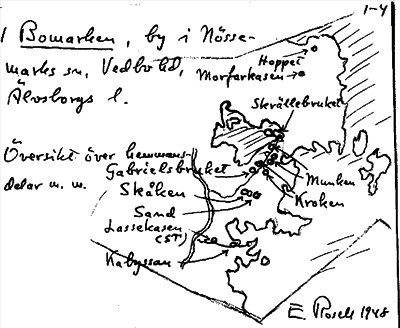 1-4
1 Bomarken, by i Nösse-
marks sn, Vedbo hd,
Älvsborgs l.
Hoppet
Morfarkasen
Skrällebruket
Översikt över hemmans-
delar m. m.
Gabrielsbruket
Skåken
Sand
Lassekasen
(ST)
Kabyssan
Munken
Kroken
E. Rosell 1948